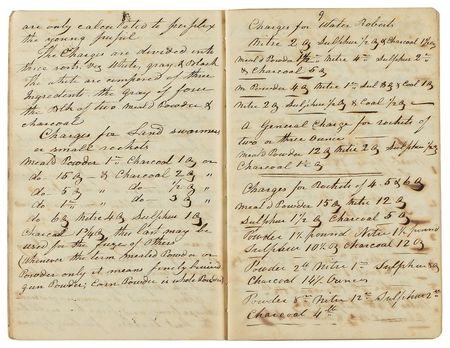 8
are only calculated to perplex
the young pupil
The Charges are devided into
three sorts. viz White, gray, & Black
The white are composed of three
Ingredients the Gray of four
the Blk of two Meald Powder &
charcoal
Charges for Land swarmers
or small rockets
Meald Powder 1 Charcoal 1 or
do 15 & Charcoal 2 "
do 5 do 1/2 "
do 1 do 3 "
do 6 Nitre 4 Sulphur 1
Charcoal this last may be
used for the fuze of others
Whenever the term mealed Powder or
Powder only it means finely bruised
gun Powder; corn Powder is whole Powder
9
Charges for Water Rockets
Nitre 2 Sulphur 1/2 & Charcoal
Meal'd Powder Nitre 4 Sulphur 2
& Charcoal 5
M Powder 4 Nitre 1 Sul & Coal 1
Nitre 2 Sulphur 1/2 & Coal 1/2
A General Charge for rockets of
two or three Ounces
Meald Powder 12 Nitre 2 Sulphur 1/2
Charcoal 1
Charges for Rockets of 4. 5 & 6
Meal'd Powder 15 Nitre 12
Sulphur 1 1/2 Charcoal 5
Powder pound Nitre pound
Sulphur 10 Charcoal 12
Powder 2 Nitre 1 Sulphur
Charcoal 14 Ounces
Powder 8 Nitre 12 Sulphur 2
Charcoal 4